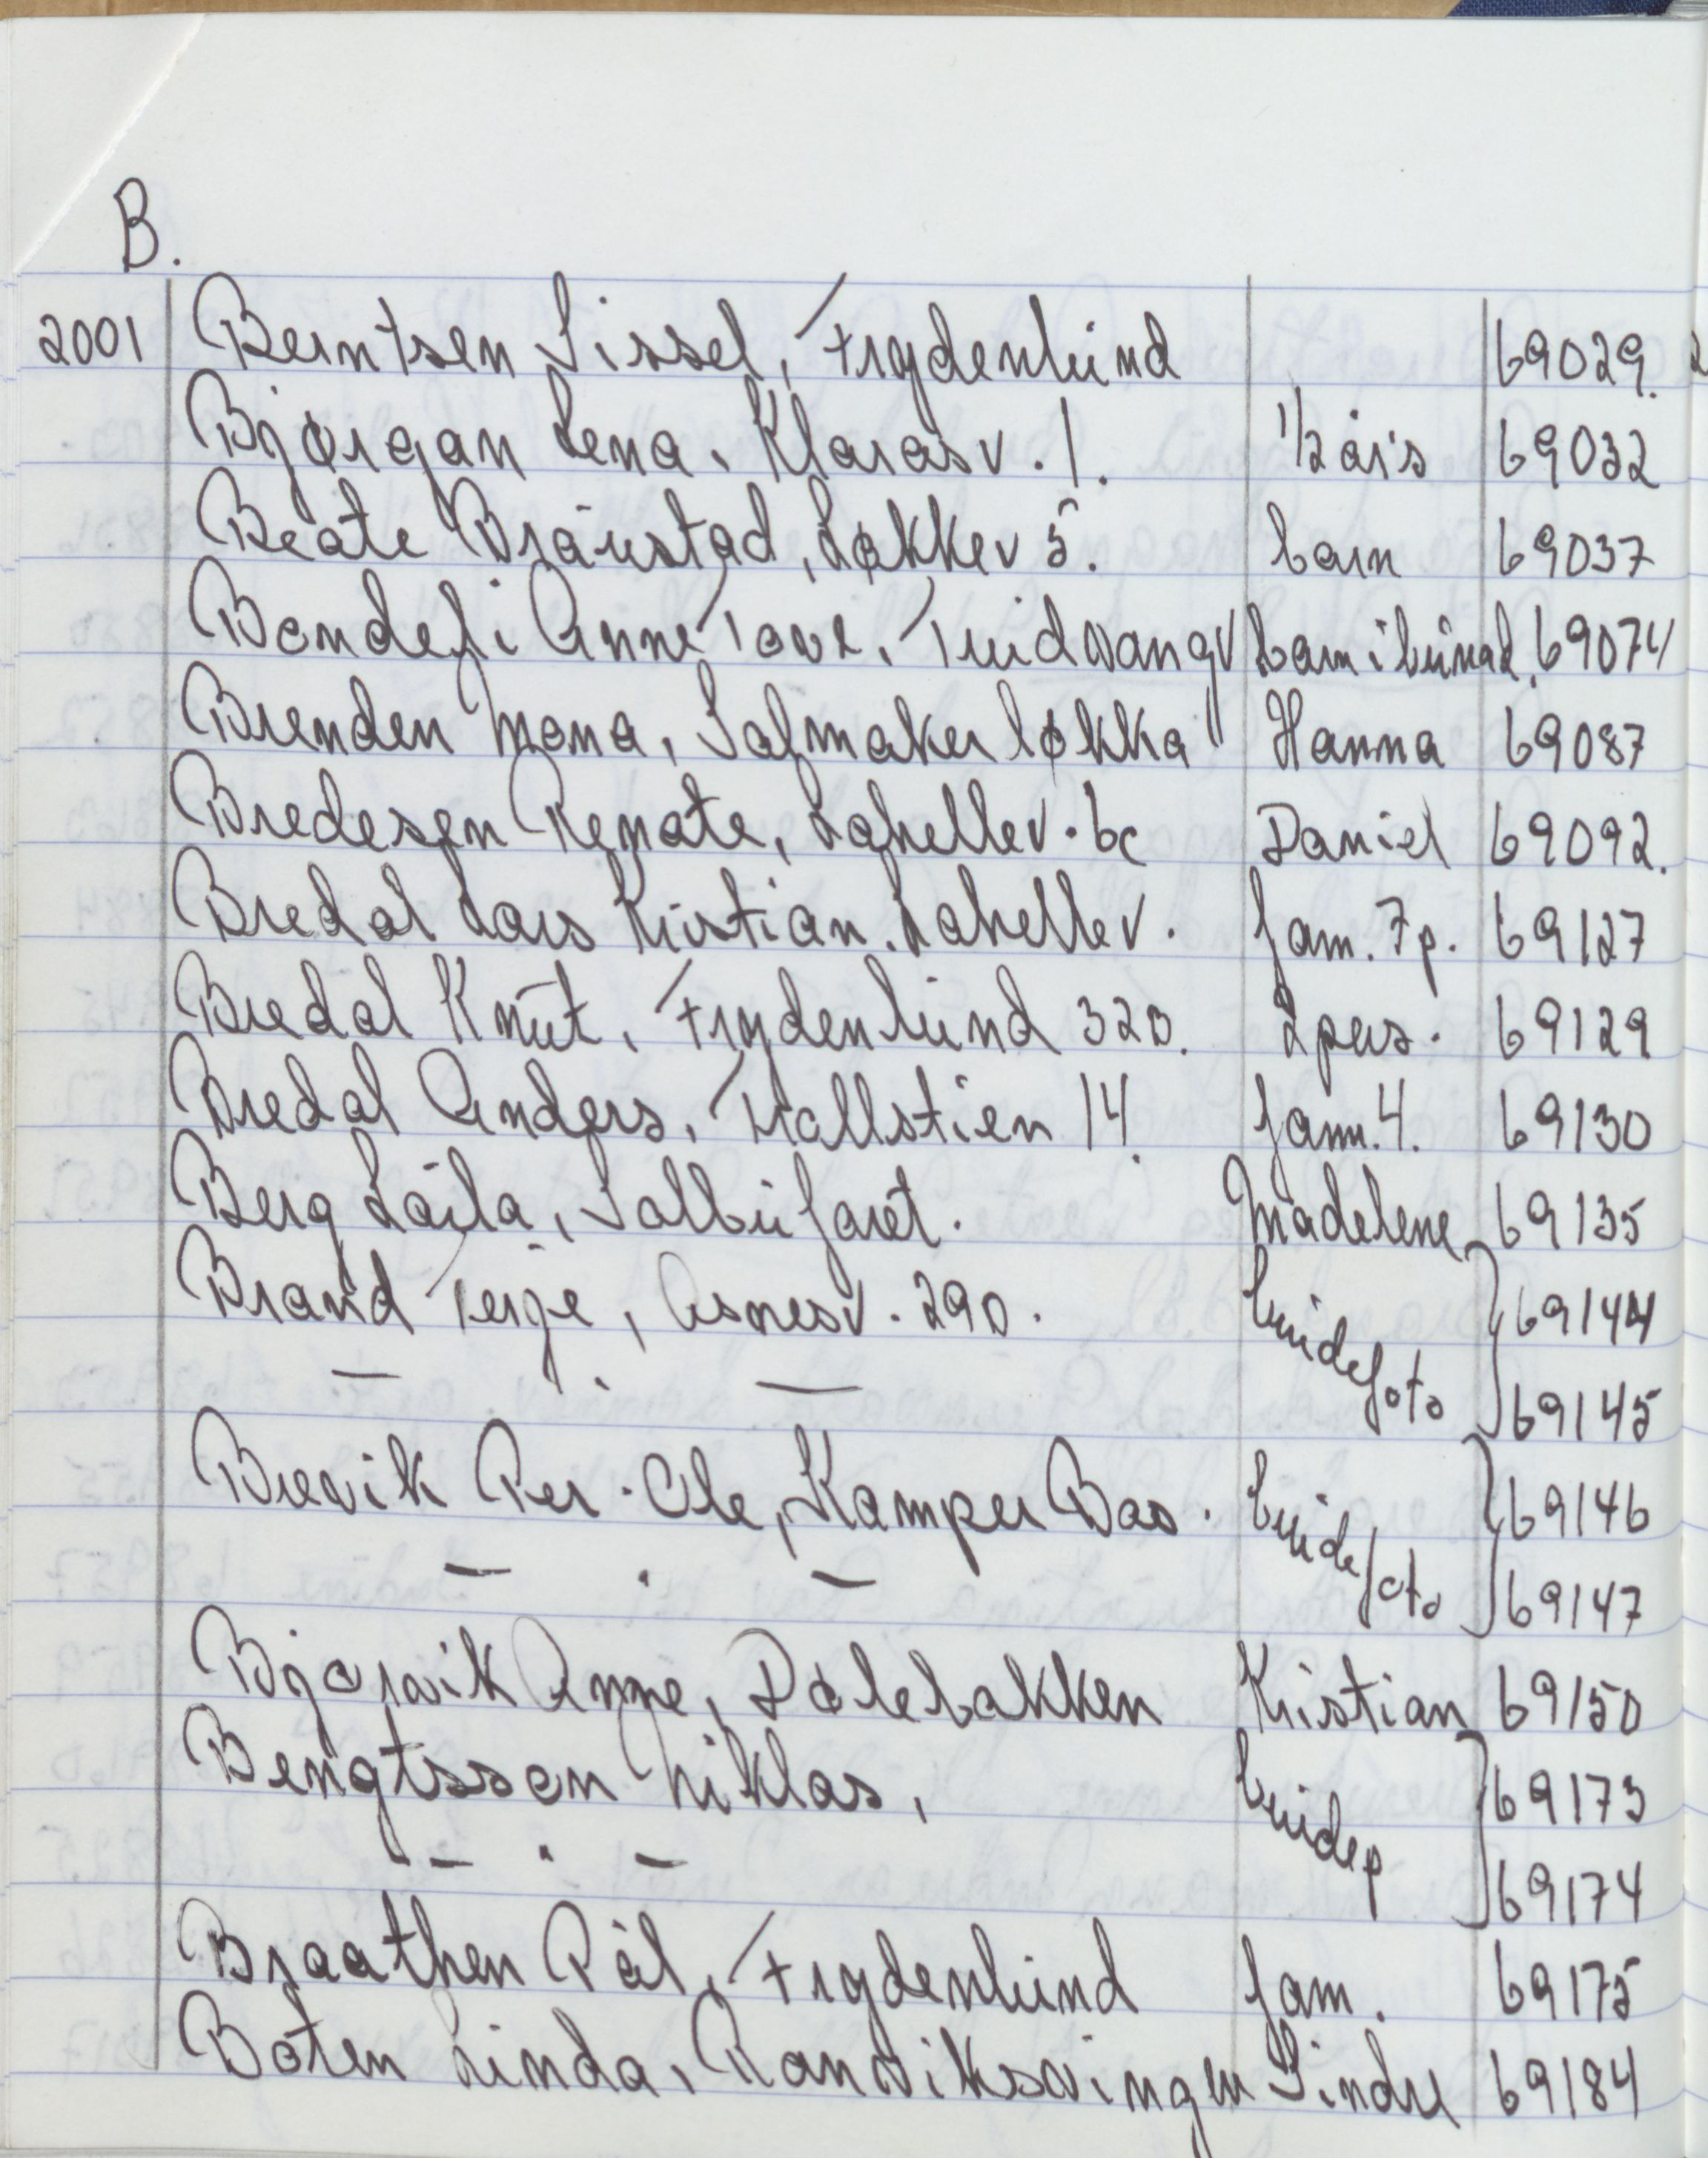 B.
2001 Berntsen Sissel, Frydenlund 69029.
Bjørgan Lena, Klarasv. 1. 1/2 års 69032
Beate Bråustad, Løkkev 5. barn 69037
Bondefi Anne Tove, Tuidvangv barn i bunad. 69074
Brenden Mona, Salmakerløkka 11 Hanna 69087
Bredesen Renate, Lahellev. 6c Daniel 69092.
Bredal Lars Kristian. Lahellev. fam. 7p. 69127
Bredal Knut, Frydenlund 32B. 2 pers. 69129
Bredal Anders, Trollstien 14. fam. 4. 69130
Berg Laila, Solbufaret. Madelene 69135
Brand Terje, Åsnesv. 29D. brudefoto 69144
— . — 69145
Brevik Per-Ole, Kamper Bao. brudefoto 69146
— . — 69147
Bjørvik Anne, Dølebakken Kristian 69150
Bengtsson Niklas, brudep 69173
— . — 69174
Braathen Pål, Frydenlund fam. 69175
Boten Linda, Ranviksvingen Sindre 69184